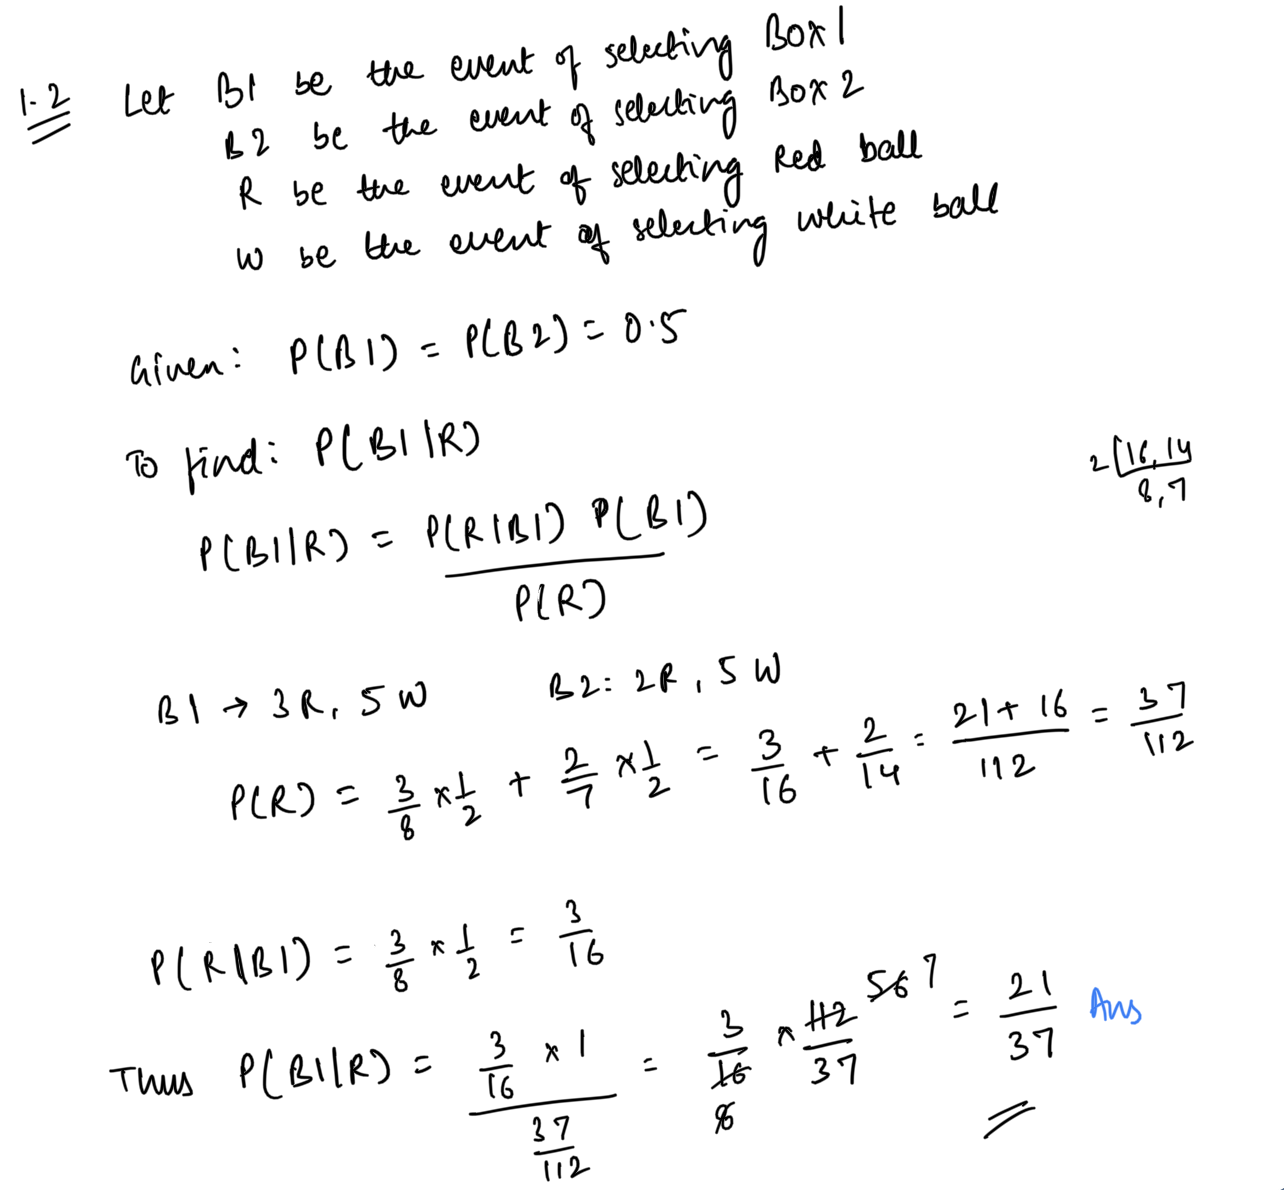 1.2 Let B1 be the event of selecting Box 1
B2 be the event of selecting Box 2
R be the event of selecting Red ball
W be the event of selecting white ball
Given: P(B1) = P(B2) = 0.5
To find: P(B1|R)
2 16, 14
8, 7
P(B1|R) = P(R|B1) P(B1)
P(R)
B1 → 3R, 5W B2: 2R, 5W
P(R) = 3/8 × 1/2 + 2/7 × 1/2 = 3/16 + 2/14 = 21 + 16/112 = 37/112
P(R|B1) = 3/8 × 1/2 = 3/16
Thus P(B1|R) = 3/16 × 1 / 37/112 = 3/16 × 112/37 56 7 = 21/37 Ans
8